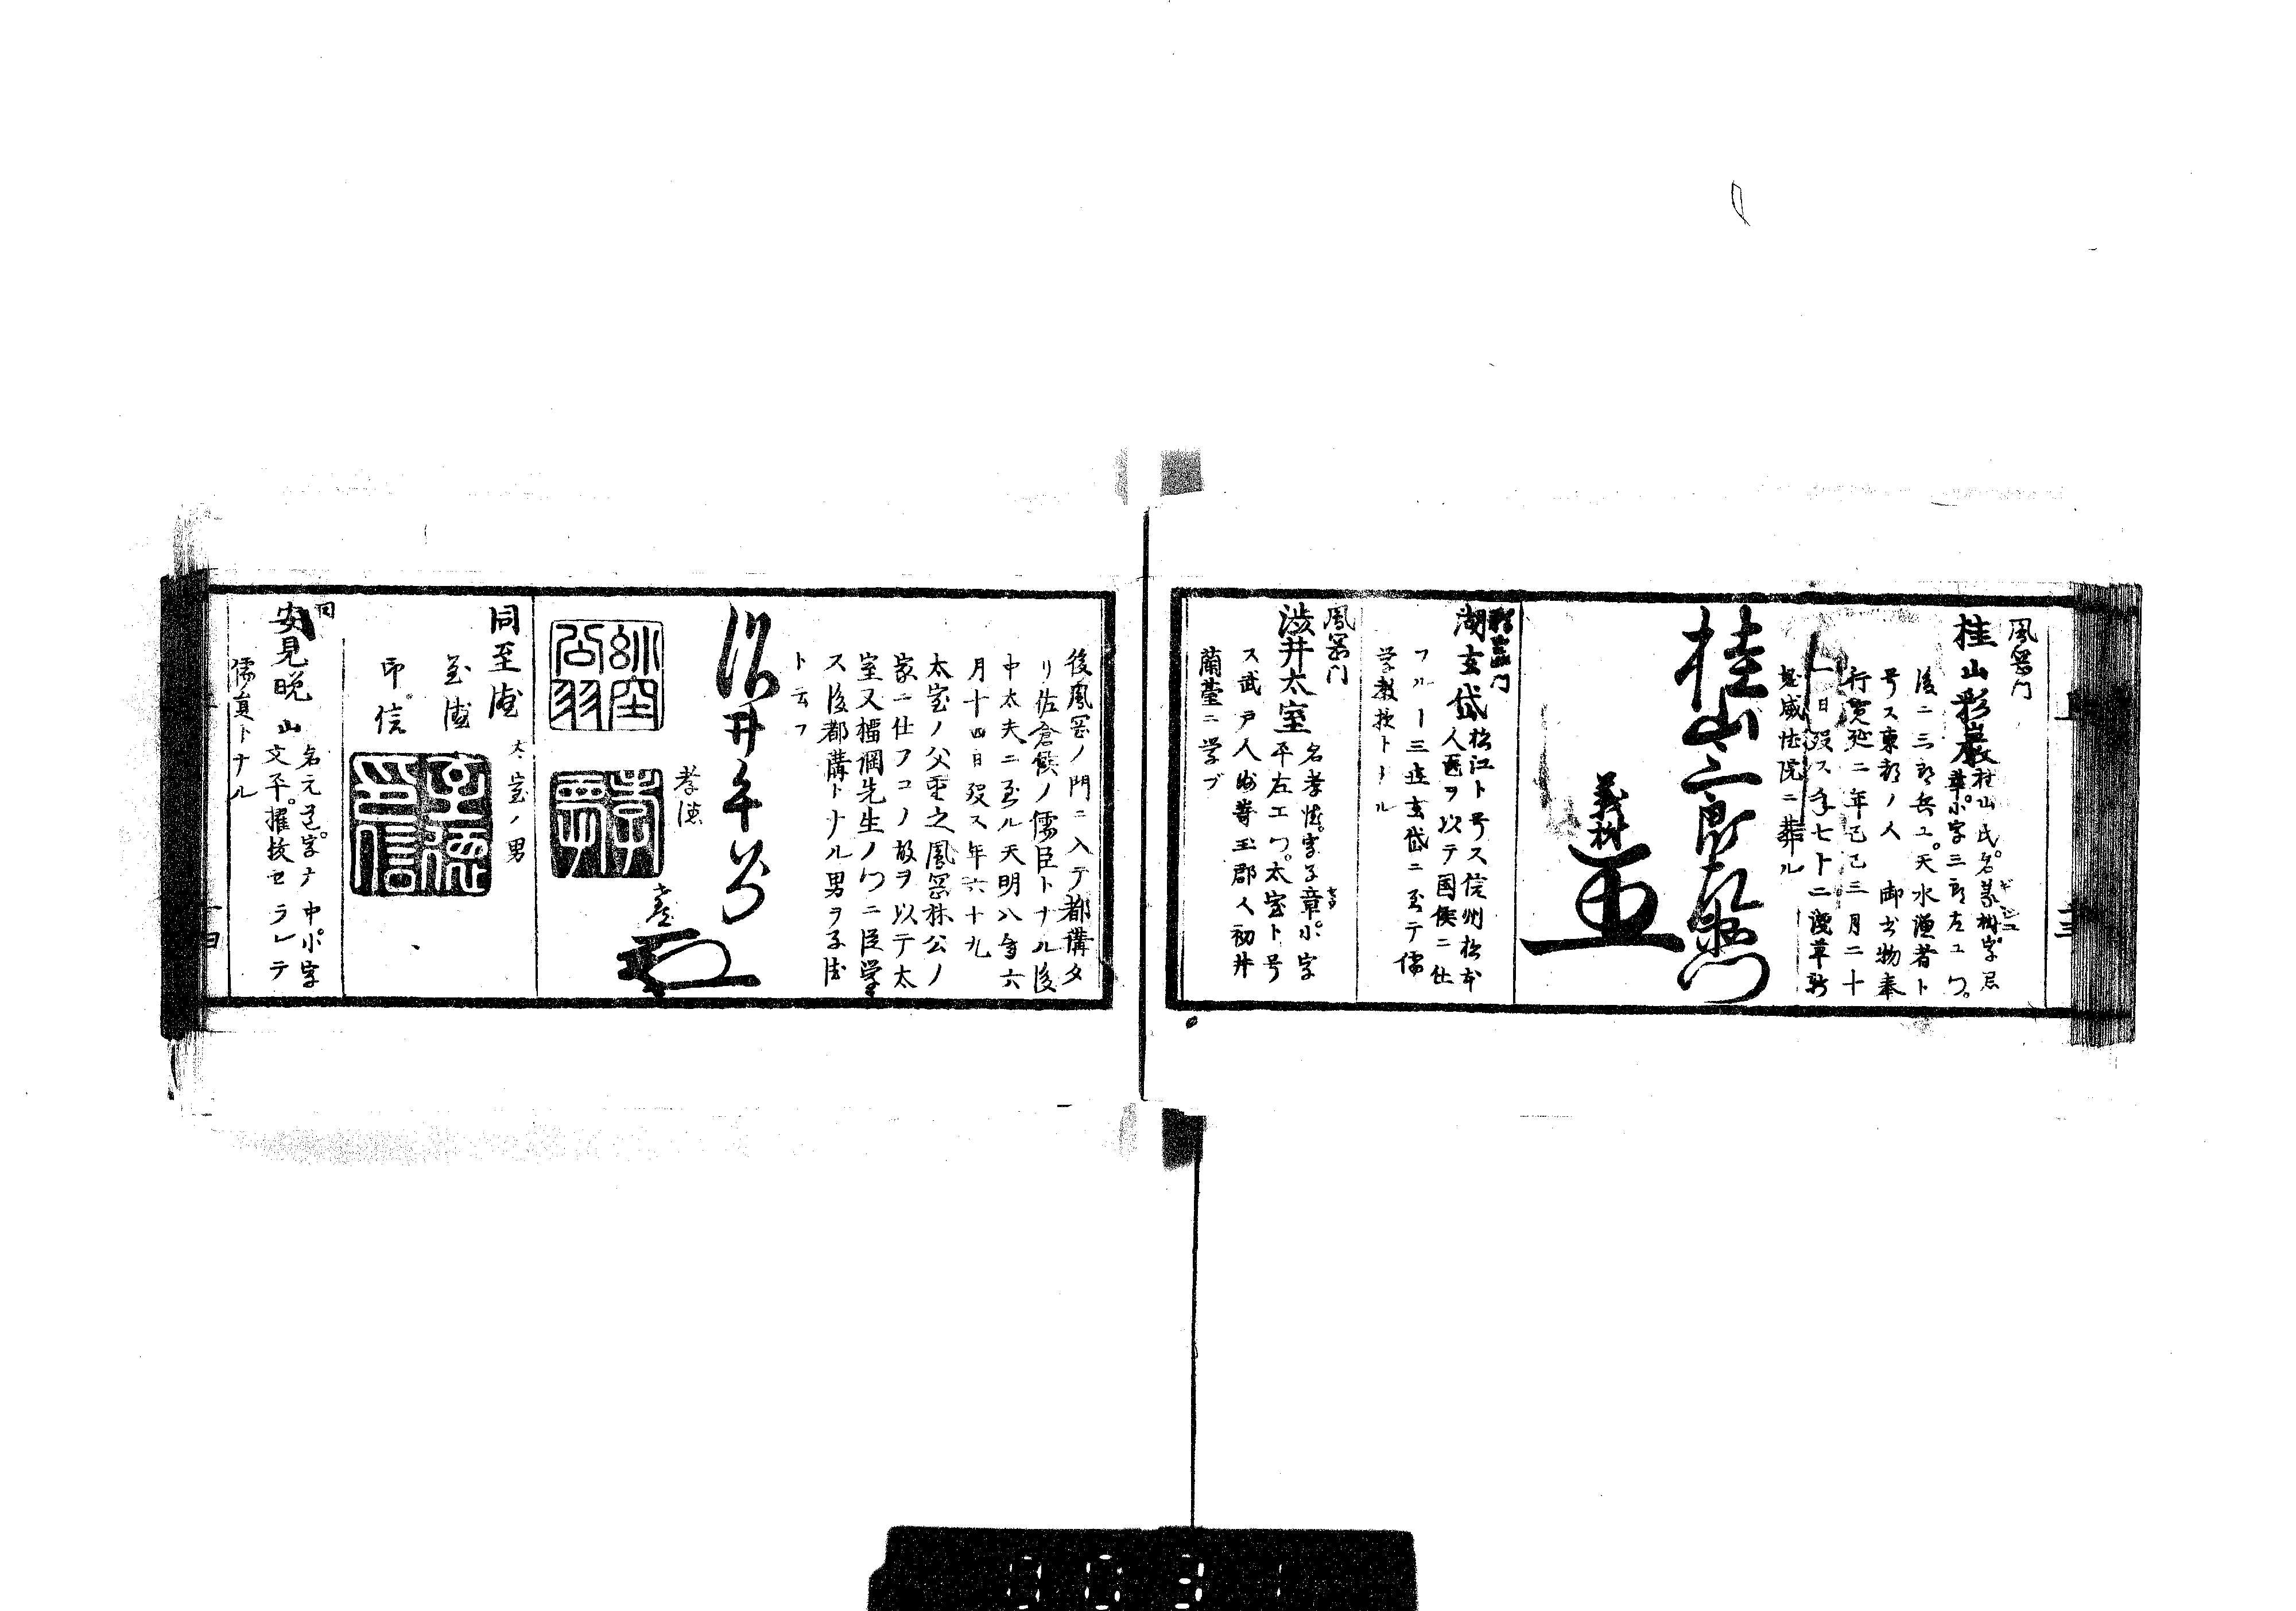 鳳岡門
桂山彩巌
桂山氏。名義樹字君
華。小字三郎左エ門。
後ニ三郎兵エ。天水漁者ト
号ス東都ノ人 御書物奉
行寛延二年己巳三月二十
一日歿ス年七十二浅草新
堀威徳院ニ葬ル
桂山三郎左衛門
義樹
門
湖玄岱
松江ト号ス信州松本
人医ヲ以テ国侯ニ仕
フル三世玄岱ニ至テ儒
学教授トナル
鳳岡門
渋井太室
名孝徳。字子章。小字
平左エ門。太室ト号
ス武戸人埼玉郡人初井
蘭臺ニ学ブ
後鳳岡ノ門ニ入テ都講タ
リ佐倉候ノ儒臣トナル後
中太夫ニ至ル天明八年六
月十四日歿ス年六十九
太室ノ父重之鳳岡林公ノ
家ニ仕フコノ故ヲ以テ太
室又榴岡先生ノ門ニ臣学
ス後都講トナル男ヲ子徳
ト云フ
渋井平
孝徳
同至徳
太室ノ男
至徳
印信
至徳
印信
同
安見晩山
名元道。字 中。小字
文平。擢抜セラレテ
儒員トナル